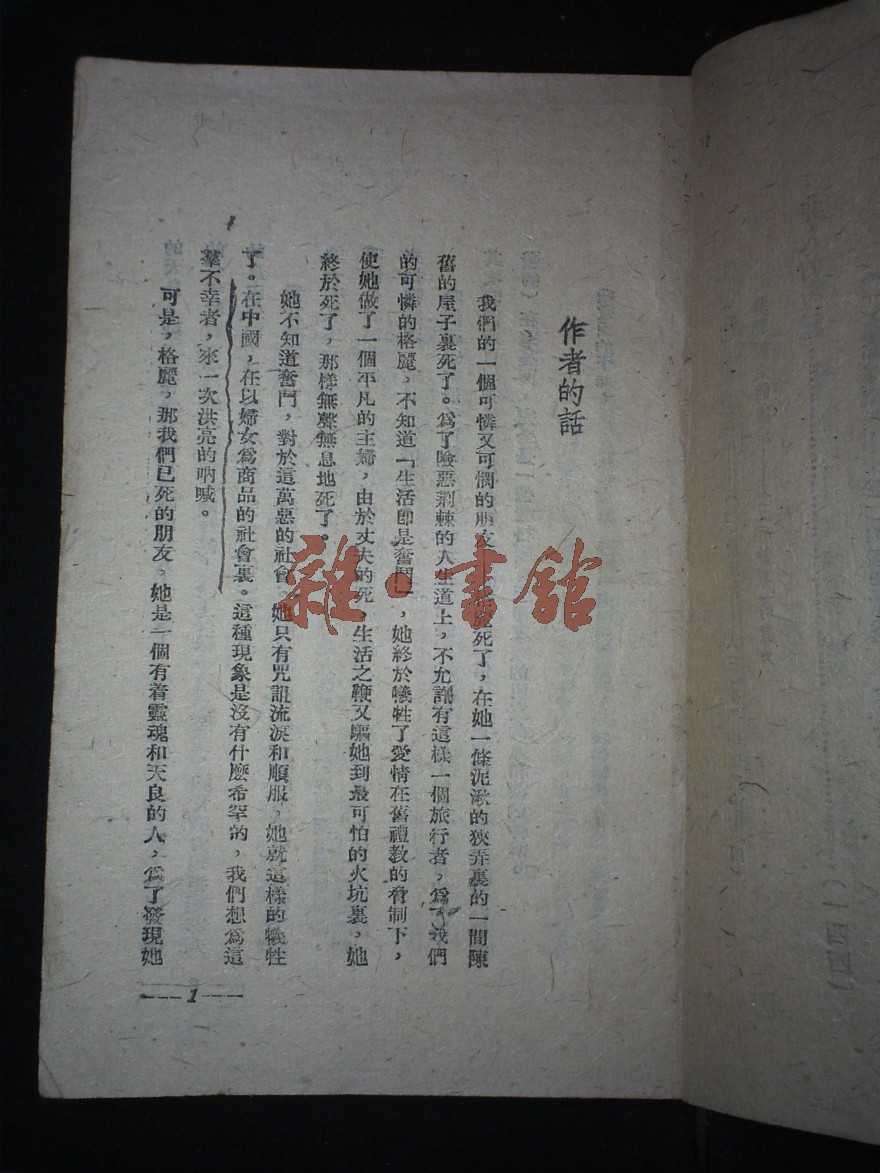 作者的話
我們的一個可憐又可憫的朋友死了，在她一條泥濘的狹弄裏的一間陳
舊的屋子裏死了。爲了險惡荆棘的人生道上，不允許有這樣一個旅行者，爲了我們
的可憐的格麗，不知道「生活卽是奮鬥」，她終於犧牲了愛情在舊禮教的脅制下，
使她做了一個平凡的主婦，由於丈夫的死，生活之鞭又驅她到最可怕的火坑裏，她
終於死了，那樣無聲無息地死了。
她不知道奮鬥，對於這萬惡的社會，她只有咒詛流淚和順服，她就這樣的犧牲
了。在中國，在以婦女爲商品的社會裏。這種現象是沒有什麽希罕的，我們想爲這
羣不幸者，來一次洪亮的吶喊。
可是，格麗，那我們已死的朋友，她是一個有着靈魂和天良的人，爲了發現她
1
雜·書館